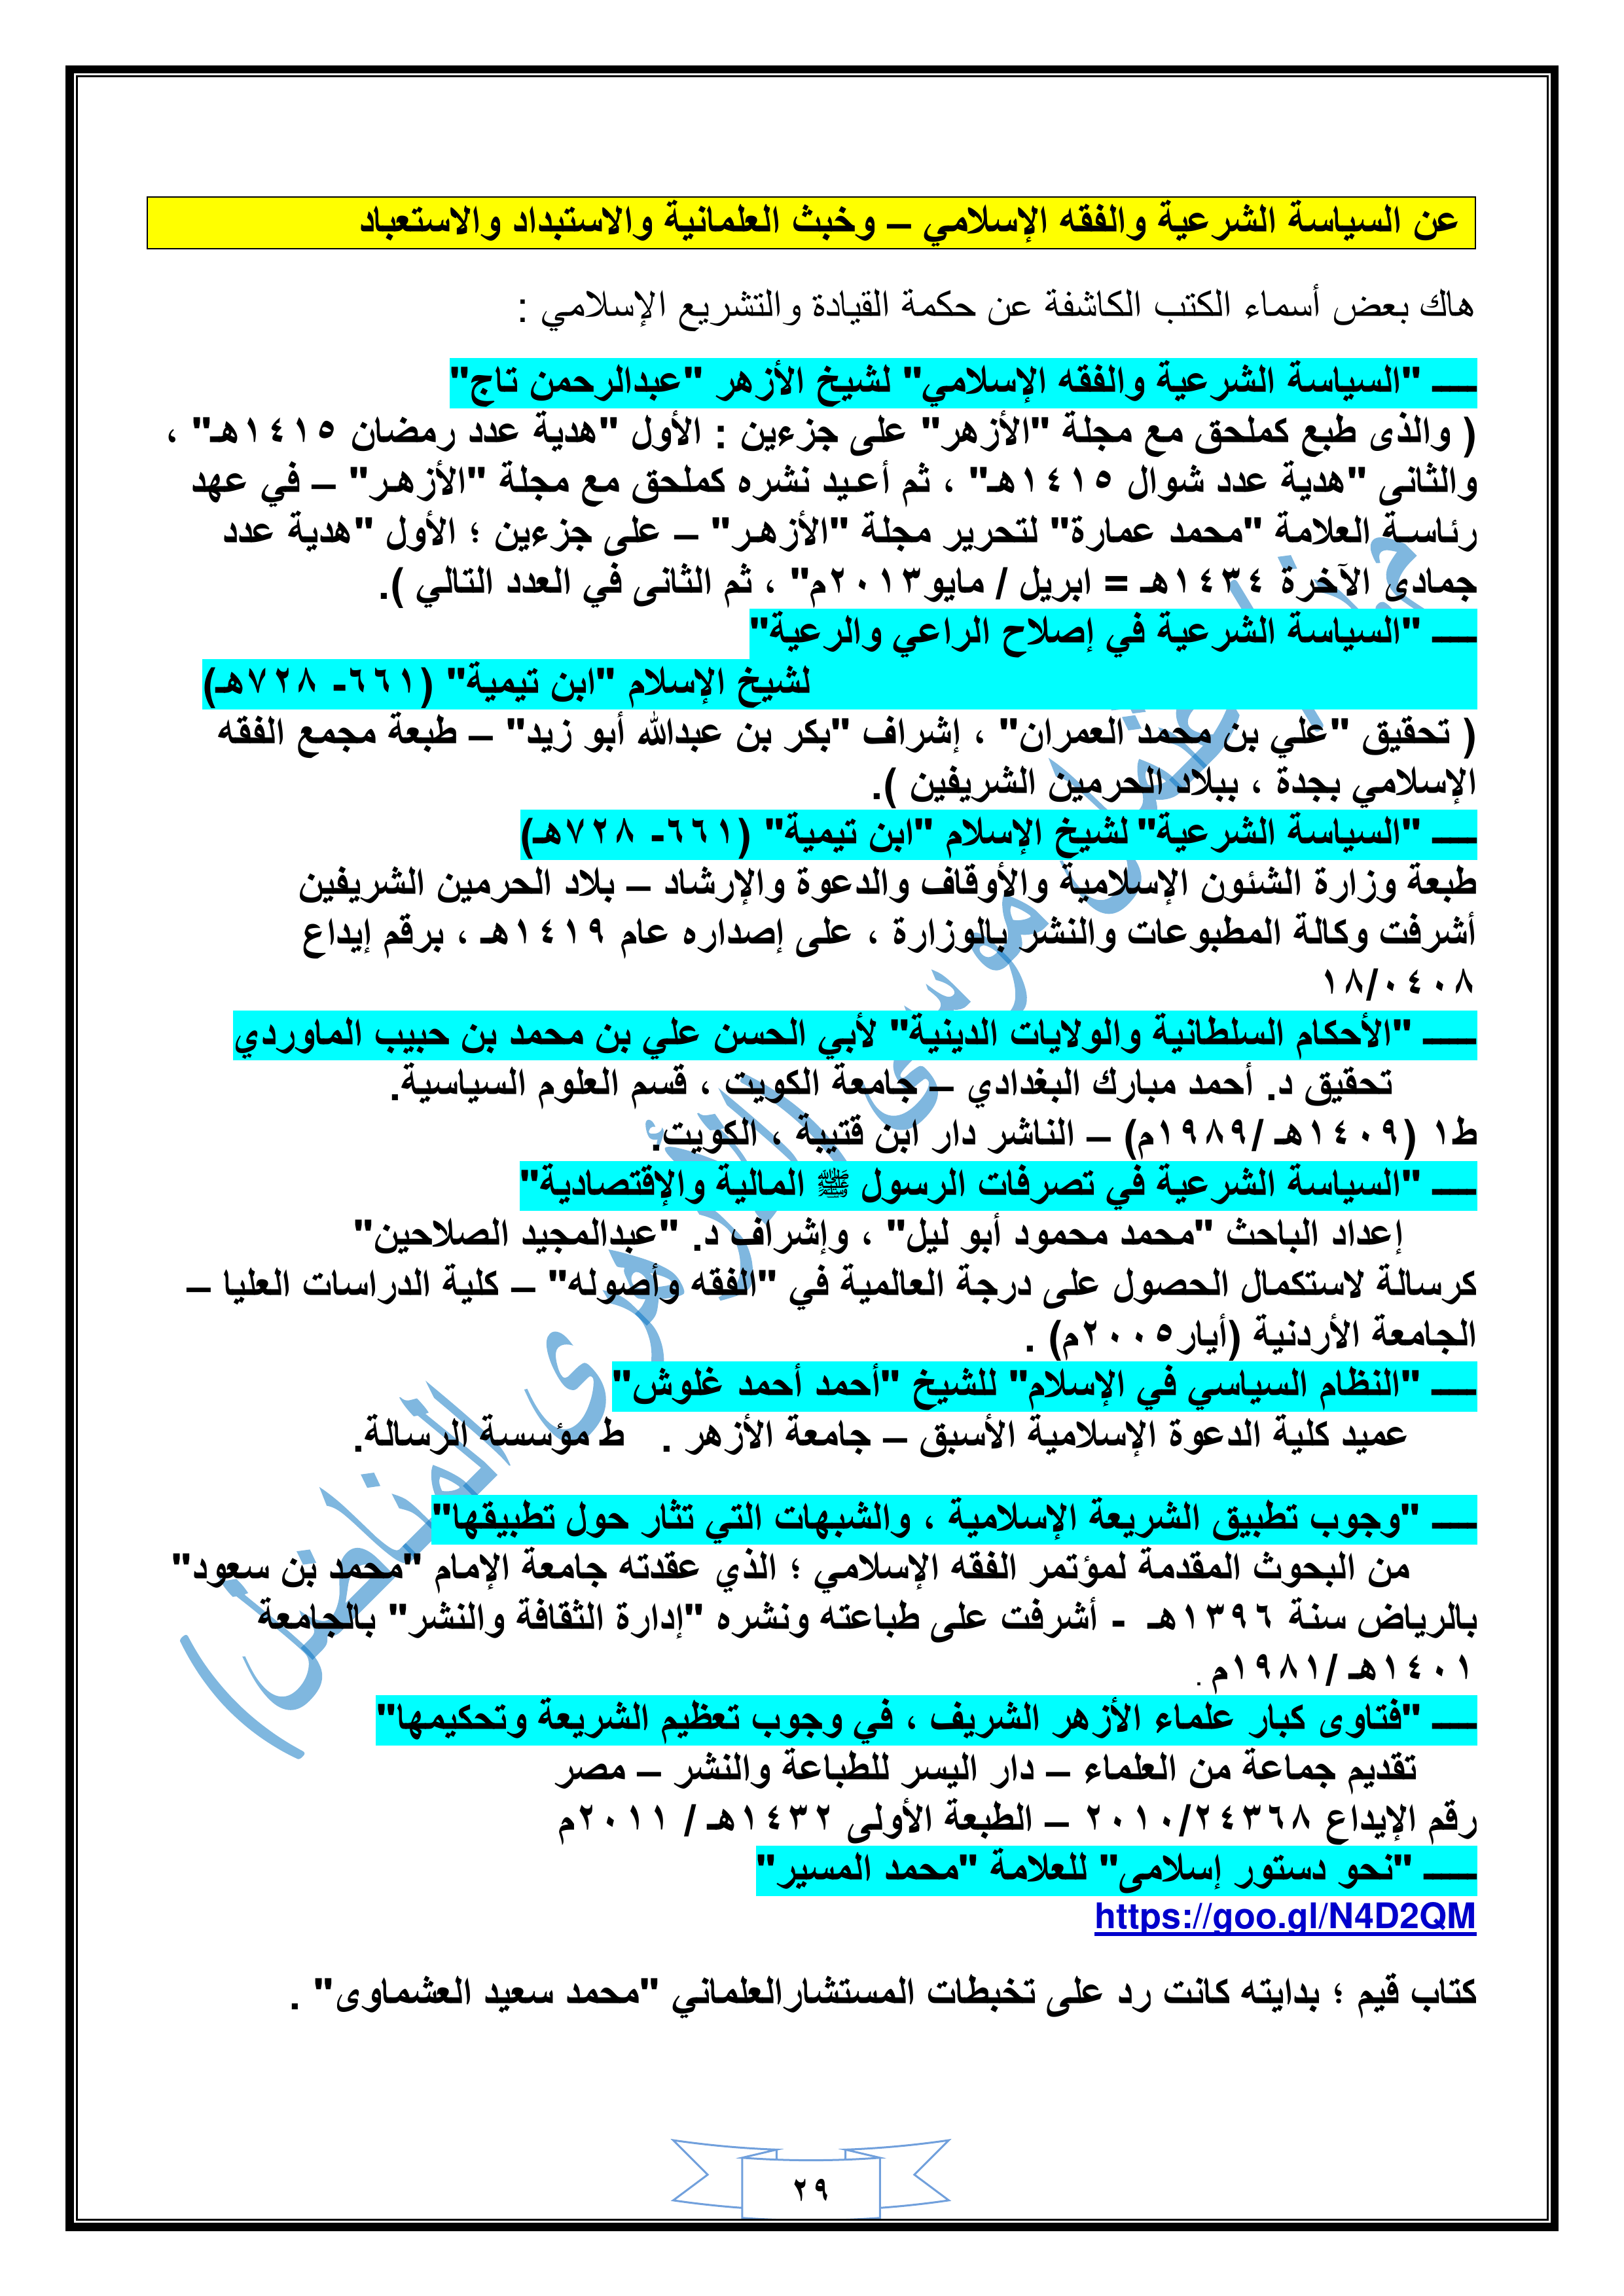 عن السياسة الشرعية والفقه الإسلامي – وخبث العلمانية والاستبداد والاستعباد
هاك بعض أسماء الكتب الكاشفة عن حكمة القيادة والتشريع الإسلامي :
ــــ "السياسة الشرعية والفقه الإسلامي" لشيخ الأزهر "عبدالرحمن تاج"
( والذى طبع كملحق مع مجلة "الأزهر" على جزءين : الأول "هدية عدد رمضان ١٤١٥هـ" ،
والثانى "هدية عدد شوال ١٤١٥هـ" ، ثم أعـيد نشره كملحق مع مجلة "الأزهـر" – في عهد
رئاسـة العلامة "محمد عمارة" لتحرير مجلة "الأزهـر" – على جزءين ؛ الأول "هدية عدد
جمادى الآخرة ١٤٣٤هـ = ابريل / مايو٢٠١٣م" ، ثم الثانى في العدد التالي ).
ــــ "السياسة الشرعية في إصلاح الراعي والرعية"
لشيخ الإسلام "ابن تيمية" (٦٦١- ٧٢٨هـ)
( تحقيق "علي بن محمد العمران" ، إشراف "بكر بن عبدالله أبو زيد" – طبعة مجمع الفقه
الإسلامي بجدة ، ببلاد الحرمين الشريفين ).
ــــ "السياسة الشرعية" لشيخ الإسلام "ابن تيمية" (٦٦١- ٧٢٨هـ)
طبعة وزارة الشئون الإسلامية والأوقاف والدعوة والإرشاد – بلاد الحرمين الشريفين
أشرفت وكالة المطبوعات والنشر بالوزارة ، على إصداره عام ١٤١٩هـ ، برقم إيداع
١٨/٠٤٠٨
ـــــ "الأحكام السلطانية والولايات الدينية" لأبي الحسن علي بن محمد بن حبيب الماوردي
تحقيق د. أحمد مبارك البغدادي – جامعة الكويت ، قسم العلوم السياسية.
ط١ (١٤٠٩هـ /١٩٨٩م) – الناشر دار ابن قتيبة ، الكويت.
ــــ "السياسة الشرعية في تصرفات الرسول ﷺ المالية والإقتصادية"
إعداد الباحث "محمد محمود أبو ليل" ، وإشراف د. "عبدالمجيد الصلاحين"
كرسالة لاستكمال الحصول على درجة العالمية في "الفقه وأصوله" – كلية الدراسات العليا –
الجامعة الأردنية (أيار٢٠٠٥م) .
ــــ "النظام السياسي في الإسلام" للشيخ "أحمد أحمد غلوش"
عميد كلية الدعوة الإسلامية الأسبق – جامعة الأزهر . ط مؤسسة الرسالة.
ــــ "وجوب تطبيق الشريعة الإسلامية ، والشبهات التي تثار حول تطبيقها"
من البحوث المقدمة لمؤتمر الفقه الإسلامي ؛ الذي عقدته جامعة الإمام "محمد بن سعود"
بالرياض سنة ١٣٩٦هـ - أشرفت على طباعته ونشره "إدارة الثقافة والنشر" بالجامعة
١٤٠١هـ /١٩٨١م .
ــــ "فتاوى كبار علماء الأزهر الشريف ، في وجوب تعظيم الشريعة وتحكيمها"
تقديم جماعة من العلماء – دار اليسر للطباعة والنشر – مصر
رقم الإيداع ٢٠١٠/٢٤٣٦٨ – الطبعة الأولى ١٤٣٢هـ / ٢٠١١م
ـــــ "نحو دستور إسلامى" للعلامة "محمد المسير"
https://goo.gl/N4D2QM
كتاب قيم ؛ بدايته كانت رد على تخبطات المستشارالعلماني "محمد سعيد العشماوى" .
٢٩